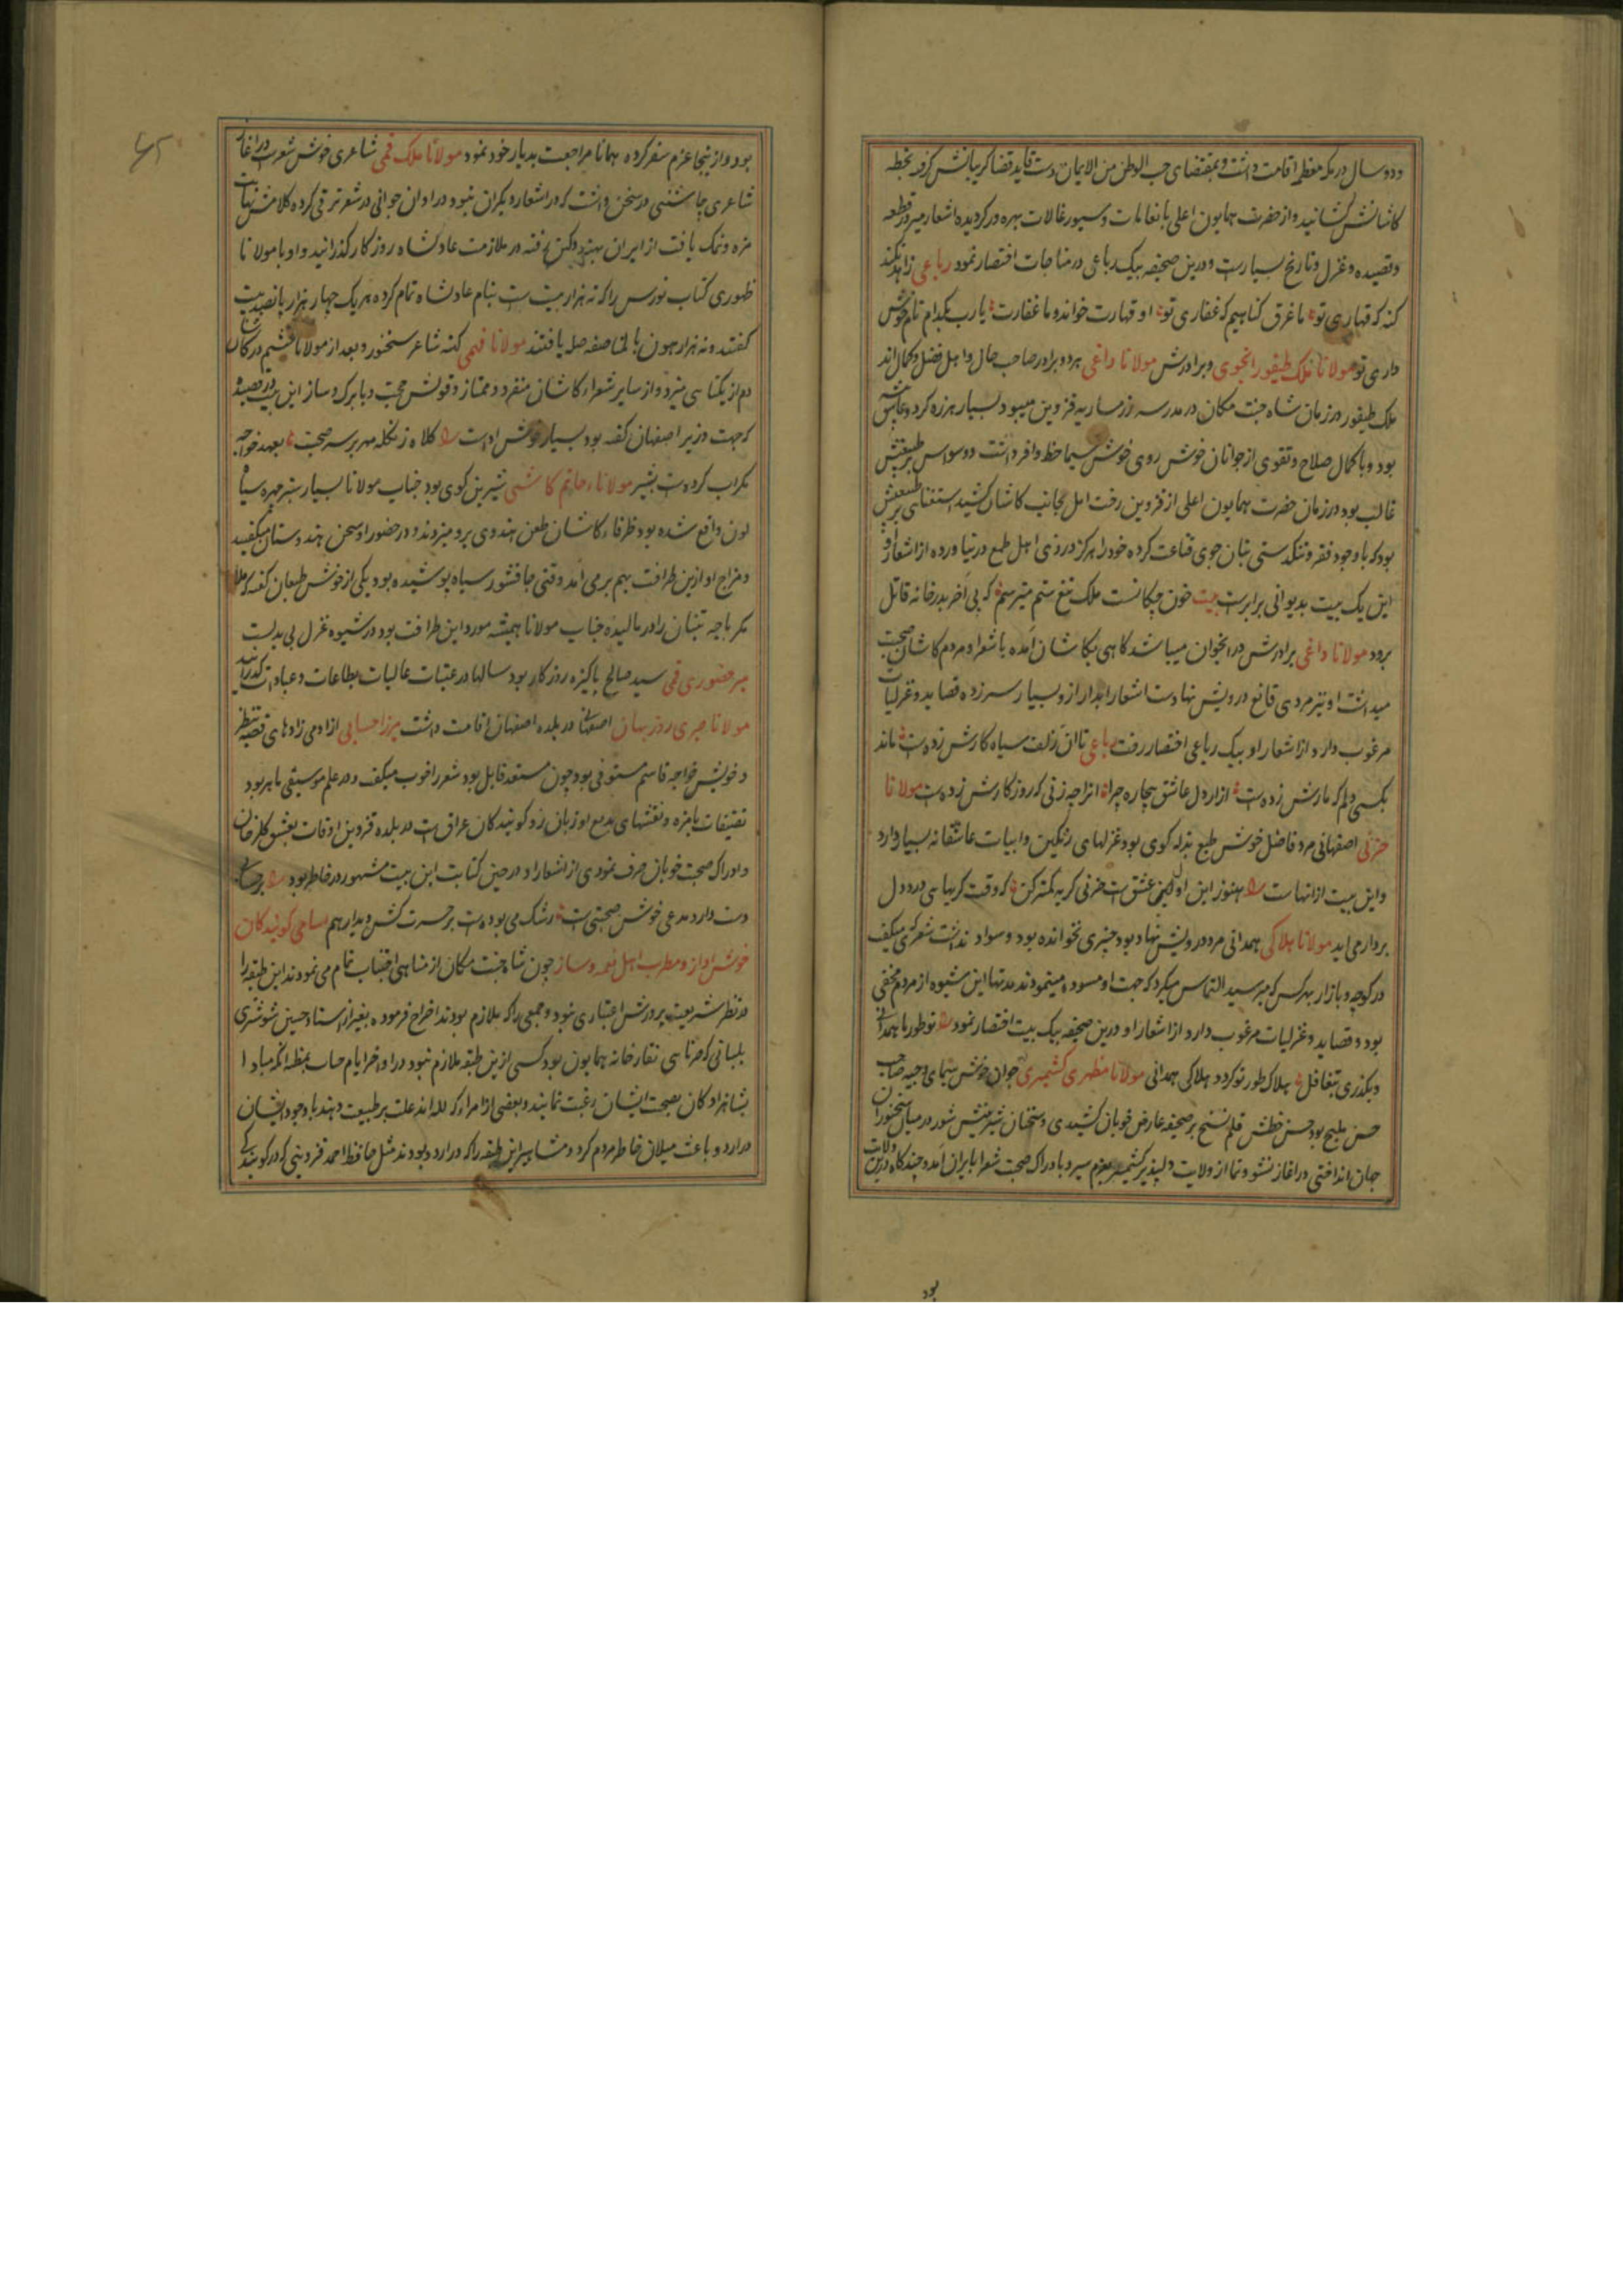 ودو سال در مکه معظمه اقامت داشت و بمقتضای حب الوطن من الایمان دست قاید قضا گریبانش گرفته بخطه
کاشانش کشانید و از حضرت همایون اعلی بانعامات و سیورغالات بهره ور گردیده اشعار میر در قطعه
وقصیده وغزل و تاریخ بسیارست و درین صحیفه بیک رباعی در مناجات اقتصار نمود رباعی زاهد نکند
کنه که قهاری تو ما غرق کناهیم که غفاری تو او قهارت خواند و ما غفارت یارب بکدام نام خوش
داری تو مولانا ملک طیفور انجوی و برادرش مولانا داعی هر دو برادر صاحب حال و اهل فضل و کمال‌اند
ملک طیفور در زمان شاه جنت مکان در مدرسه قزوین میبود بسیار هرزه کرد و عاشق پیشه
بود و با کمال صلاح و تقوی از جوانان خوش روی خوش سیما حظ وافر داشت و وسواس بر طبعش
غالب بود در زمان حضرت همایون اعلی از قزوین رخت امل بجانب کاشان کشید استغنا بر طبعش
بود که با وجود فقر و تنکدستی بنان جوی قناعت کرده خود را هرکز در زی اهل طمع درنیاورده از اشعار او
این یک بیت بدیوانی برابرست بیت خون چکانست ملک تیغ ستم میترسم که پی آخر بدر خانه قاتل
برود مولانا داعی برادرش در انجوان میباشد کاهی بکاشان آمده با شعرا و مردم کاشان صحبت
میداشت او نیز مردی قانع درویش نهادست اشعار ابدار ازو بسیار سرزده قصاید و غزلیات
مرغوب دارد از اشعار او بیک رباعی اقتصار رفت رباعی تا ان زلف سیاه کارش زدست ماند
بکسی دلم که مارش زدست ازار دل عاشق بیچاره چرا انرا چه زنی که روزکارش زدست مولانا
حزنی اصفهانی مرد فاضل خوش طبع بذله کوی بود غزلهای رنکین و ابیات عاشقانه بسیار دارد
و این بیت از انهاست هنوز این اول عشق است حزنی کریه کمتر کن که وقت کریهای درد دل
بردار می اید مولانا هلاکی همدانی مرد درویش نهاد بود چیزی نخوانده بود و سواد نداشت شعری که میکفت
در کوچه و بازار بهر کس که میرسید التماس میکرد که جهت او مسوده مینمودند مدتها این شیوه از مردم مخفی
بود و قصاید و غزلیات مرغوب دارد از اشعار او درین صحیفه بیک بیت اقتصار نمود تو طور ما همه دانی
و بکذری بتغافل هلاک طور تو کردد هلاکی همدانی مولانا مظهری کشمیری جوان خوش سیمای وجیه صاحب
حسن ملیح بود حسن خطش قلم نسخ بر صحیفه عارض خوبان کشیدی و سخنان شیرینش شور در میان سخنوران
جهان انداختی در اغاز نشو و نما از ولایت دلپذیر کشمیر بعزم سیر و بادراک صحبت شعرا بایران آمد و چندکاه درین ولایت
بود
بود و از اینجا عزم سفر کرده همانا مراجعت بدیار خود نمود مولانا ملک قمی شاعری خوش شعرست در اغاز
شاعری چاشنی در سخن داشت که در اشعار دیکران نبود و در اوان جوانی در شعر ترقی کرده کلامش نهایت
مزه و نمک یافت از ایران بهند دکن رفته در ملازمت عادلشاه روزکار کذرانید و او با مولانا
ظهوری کتاب نورس را که نه هزار بیت است بنام عادلشاه تمام کرده هر یک چهار هزار پانصد بیت
کفتند و نه هزار هون بالمناصفه صله یافتند مولانا فهمی کنه شاعر سخنور و بعد از مولانا محتشم در کاشان
دم از یکتایی میزد و از سایر شعراء کاشان منفرد و ممتاز و قوتش حجت و با برک و ساز این بیت در قصیده
که جهت وزیر اصفهان کفته بود بسیار خوش اداست کلاه زنکله مهر بر سر صحبت بعهد خواجه
مکراب کردست بشیر مولانا حاتم کاشی شیرین کوی بود جناب مولانا بسیار سبز چهره سیاه
لون واقع شده بود ظرفاء کاشان طعن هندوی برو میزدند و در حضور او سخن هندوستان میکفتند
و مزاج او ازین ظرافت بهم بر می امد وقتی چاقشور سیاه پوشیده بود یکی از خوش طبعان کفت که ملا
مکر پاچه تنبان را ورمالیده جناب مولانا همیشه مورد این ظرافت بود در شیوه غزل بی بدلست
میر حضوری قمی سید صالح پاکیزه روزکار بود سالها در عتبات عالیات بطاعات و عبادات کذرانید
مولانا صبری روزبهان اصفهانی در بلده اصفهان اقامت داشت میرزا حسابی از ادمی زادهای قصبه نطنز
و خویش خواجه قاسم مستوفی بود چون مستعد قابل بود شعر را خوب میکفت و در علم موسیقی ماهر بود
تصنیفات بامزه و نقشهای بدیع او زبان زد کویندکان عراق است در بلده قزوین اوقات بعشق کلرخان
و ادراک صحبت خوبان صرف نمودی از اشعار او در حین کتابت این بیت مشهور در خاطر بود
دست دارد مدعی خوش صحبتی است رشک می بودست بر حسرت کش دیدار هم اسامی کویندکان
خوش اواز و مطرب اهل نغمه و ساز چون شاه جنت مکان از مناهی اجتناب تمام می نمودند این طبقه را
در نظر شریعت پرورش اعتباری نبود و جمعی را که ملازم بودند اخراج فرموده بغیر از استاد حسین شوشتری
بلبانی که سرنایی نقارخانه همایون بود کسی ازین طبقه ملازم نبود در اواخر ایام حیات بمظنه انکه مبادا
شاهزادکان بصحبت ایشان رغبت نمایند و بعضی از امراء که للهاند علت بر طبیعت نهند با وجود ایشان
در اردو باعث میلان خاطر مردم کردد مشاهیر این طبقه را که در اردو بودند مثل حافظ احمد قزوینی که در کویندکی